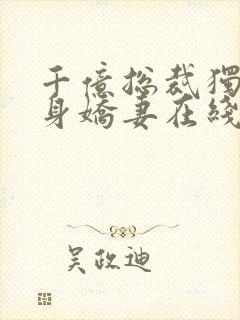 千億总裁獨
身嬌妻在綫
吴政迪